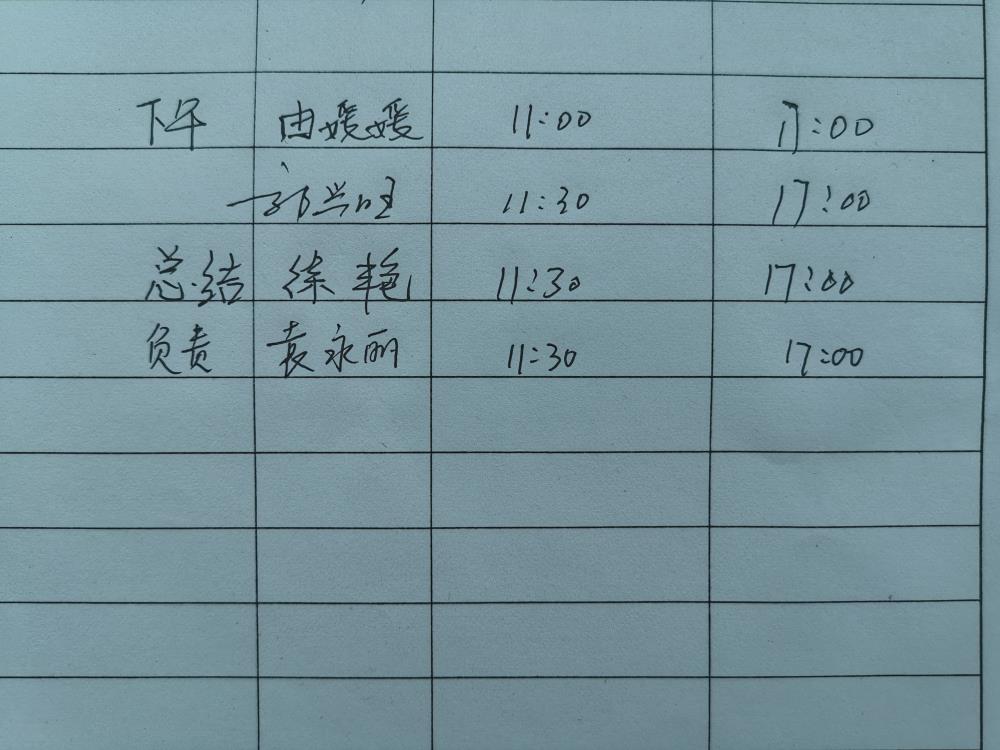 下午 由媛媛 11:00 17:00
郭兴旺 11:30 17:00
总结 徐艳 11:30 17:00
负责 袁永丽 11:30 17:00